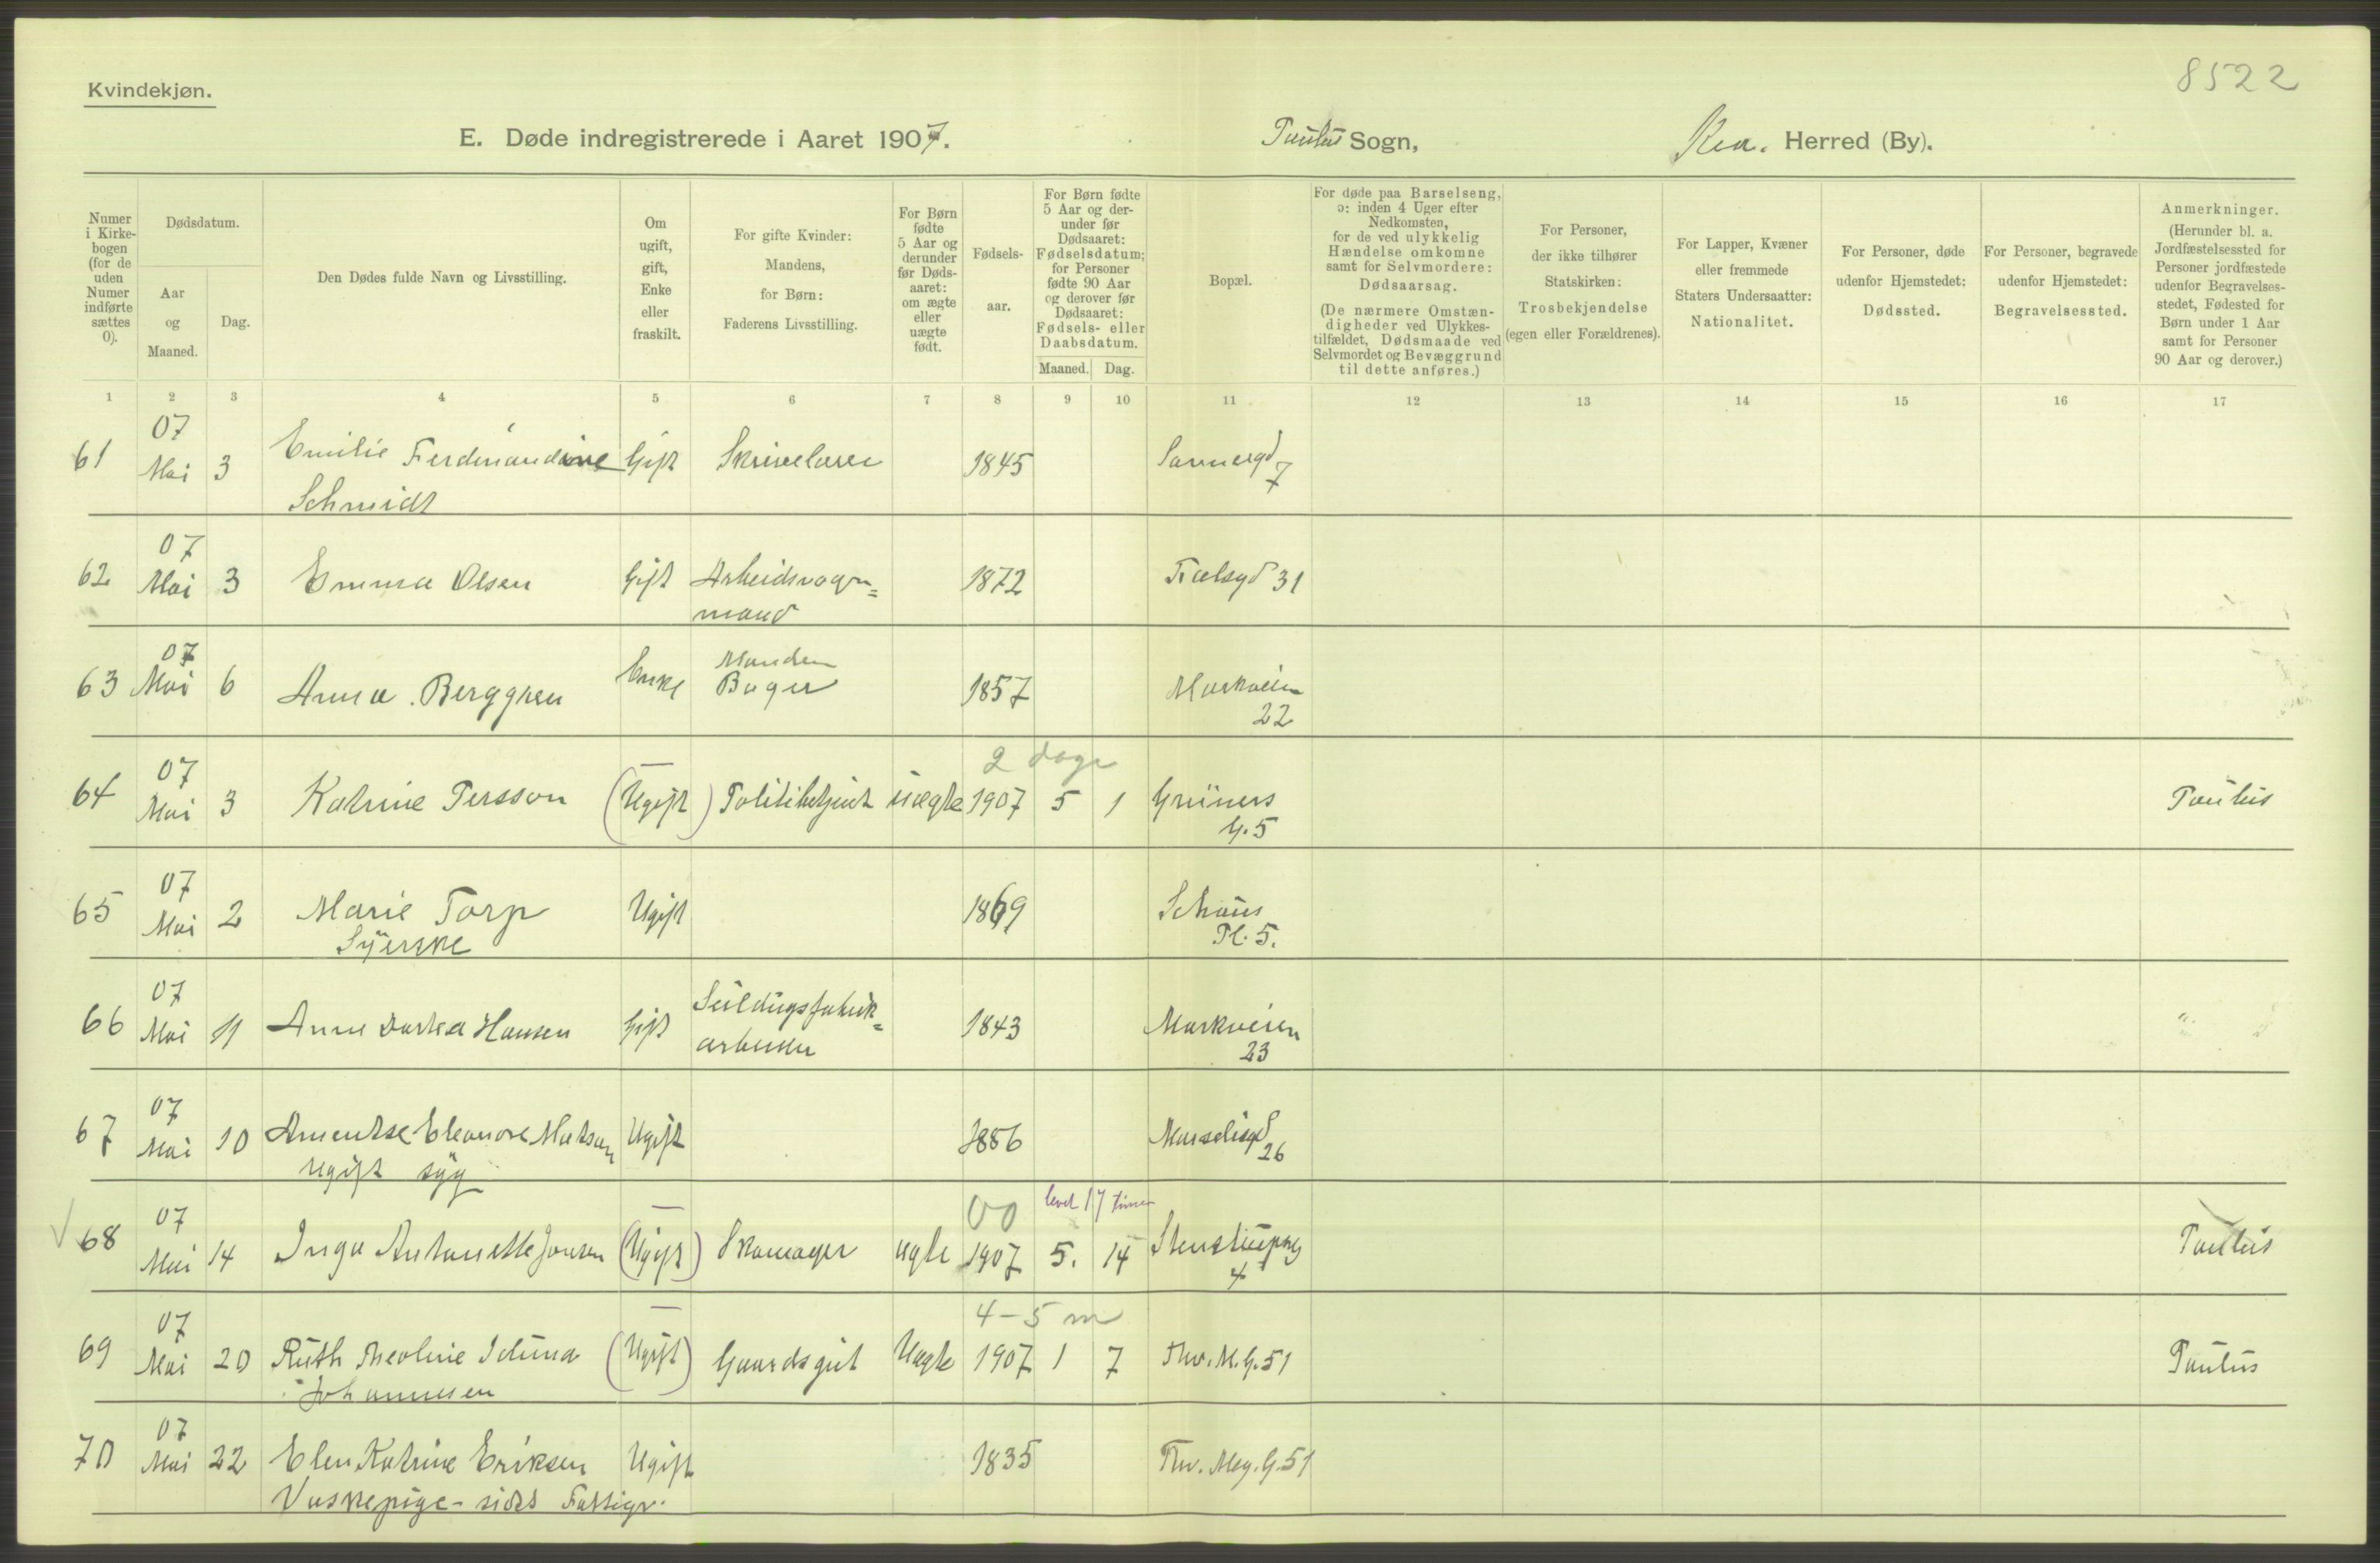 8522
Kvindekjøn.
E. Døde indregistrerede i Aaret 1907. Paulus Sogn, Kra. Herred (By).
Numer i Kirke- bogen (for de uden Numer indførte sættes 0).
Dødsdatum.
Aar og Maaned.
Dag.
Den Dødes fulde Navn og Livsstilling.
Om ugift, gift, Enke eller fraskilt.
For gifte Kvinder: Mandens, for Børn: Faderens Livsstilling.
For Børn fødte 5 Aar og derunder før Døds- aaret: om ægte eller uægte født.
Fødsels- aar.
For Børn fødte 5 Aar og der- under før Dødsaaret: Fødselsdatum; for Personer fødte 90 Aar og derover før Dødsaaret: Fødsels- eller Daabsdatum.
Maaned. Dag.
Bopæl.
For døde paa Barselseng, ɔ: inden 4 Uger efter Nedkomsten, for de ved ulykkelig Hændelse omkomne samt for Selvmordere: Dødsaarsag.
(De nærmere Omstæn- digheder ved Ulykkes- tilfældet, Dødsmaade ved Selvmordet og Bevæggrund til dette anføres.)
For Personer, der ikke tilhører Statskirken: Trosbekjendelse (egen eller Forældrenes).
For Lapper, Kvæner eller fremmede Staters Undersaatter: Nationalitet.
For Personer, døde udenfor Hjemstedet: Dødssted.
For Personer, begravede udenfor Hjemstedet: Begravelsessted.
Anmerkninger. (Herunder bl. a. Jordfæstelsessted for Personer jordfæstede udenfor Begravelses- stedet, Fødested for Børn under 1 Aar samt for Personer 90 Aar og derover.)
1 2 3 4 5 6 7 8 9 10 11 12 13 14 15 16 17
07
61 Mai 3 Emilie Ferdinandine Gift 1845 Sannergd 7
Schmidt
07
62 Mai 3 Emma Olsen Gift Arbeidsvogn= 1872 31
mand
07 Manden
63 Mai 6 Anna Berggren Enke Bager 1857 Markveien
22
07 2 dage
64 Mai 3 Katrine Persson (Ugift) Politibetjent uægte 1907 5 1 Grüners Paulus
G. 5
07
65 Mai 2 Marie Torp Ugift 1869 Schous
Syerske Pl. 5.
07 Seildugsfabrik=
66 Mai 11 Anne Dortea Hansen Gift arbeider 1843 Markveien
23
07
67 Mai 10 Amentse Eleonore Matsen Ugift 1886 26
Ugift syg
07 00 levet 17 timer
68 Mai 14 Inga Antonette Jonsen (Ugift) Skomager ægte 1907 5. 14 Stenstrupsg Paulus
4
07 4-5 m
69 Mai 20 Ruth Theoline (Ugift) Gaardsgut Uægte 1907 1 7 Thv. M. G. 51 Paulus
Johannesen
07
70 Mai 22 Elen Katrine Eriksen Ugift 1835 Thv. Mey. G. 51
Vaskepige - sidst Fattigv.